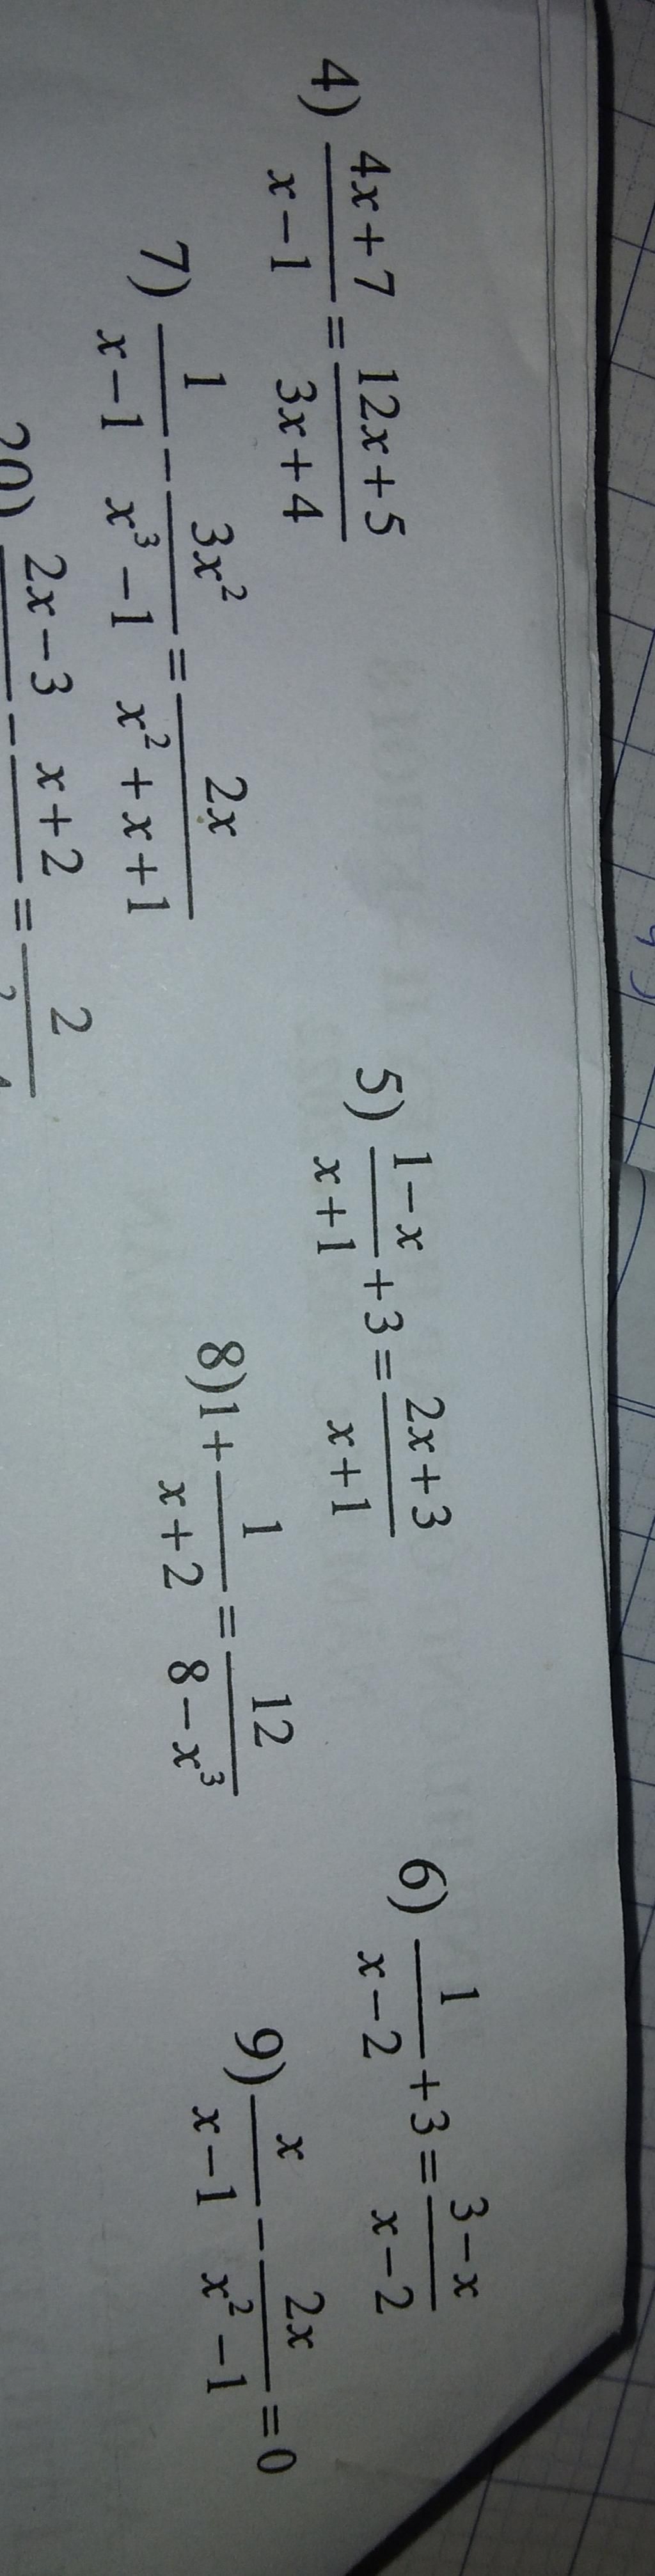 4) (4x+7)/(x−1) = (12x+5)/(3x+4)   5) (1−x)/(x+1) + 3 = (2x+3)/(x+1)   6) 1/(x−2) + 3 = (3−x)/(x−2)
7) 1/(x−1) − 3x²/(x³−1) = 2x/(x²+x+1)   8) 1 + 1/(x+2) = 12/(8−x³)   9) x/(x−1) − 2x/(x²−1) = 0
20) 2x−3 − x+2 = 2